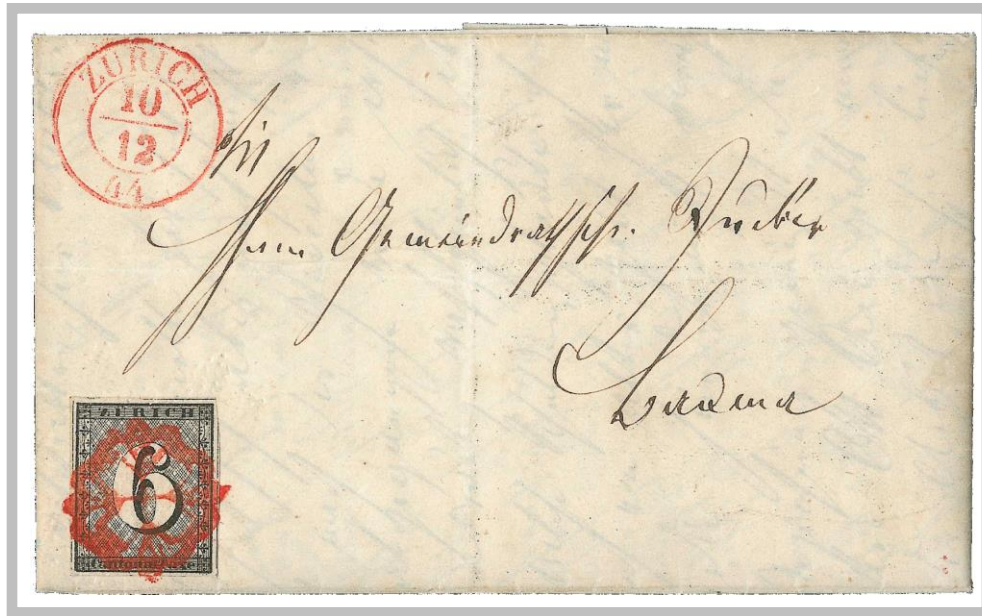 ZÜRICH
10
12
44
An
Herrn Gemeindrathsch.
Bauma
ZÜRICH
6
Cantonal-Taxe